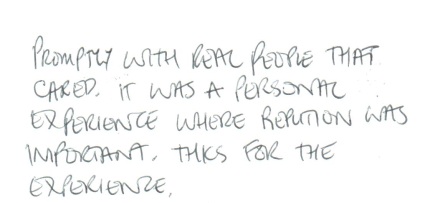 PROMPTLY WITH REAL PEOPLE THAT
CARED. IT WAS A PERSONAL
EXPERIENCE WHERE REPUTION WAS
IMPORTANT. THKS FOR THE
EXPERIENZE.